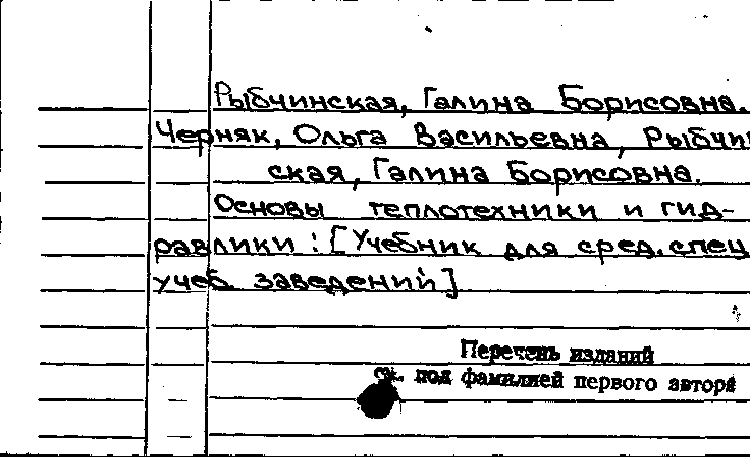 Рыбчинская, Галина Борисовна.
Черняк, Ольга Васильевна, Рыбчин
ская, Галина Борисовна.
Основы теплотехники и гид-
равлики : [Учебник для сред. спец
учеб. заведений]
Перечень изданий
см. под фамилией первого автора